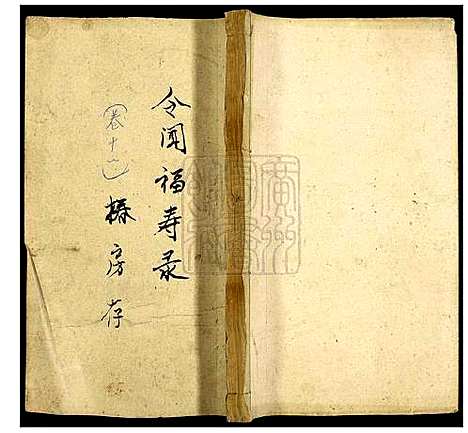 令闻福寿录
(卷十一) 椿房存